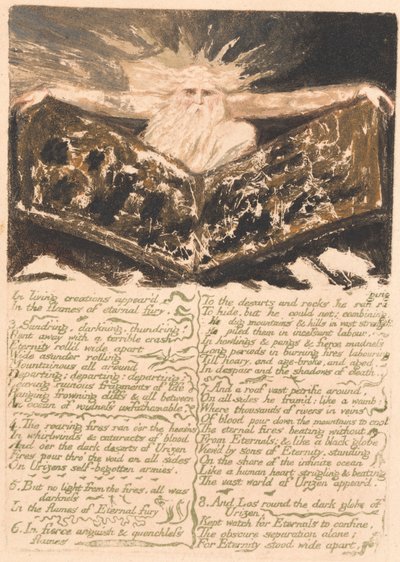 In living creations appear'd
In the flames of eternal fury.
3. Sund'ring, dark'ning, thund'ring!
Rent away with a terrible crash
Eternity roll'd wide apart
Wide asunder rolling
Mountainous all around
Departing; departing; departing:
Leaving ruinous fragments of life
Hanging frowning cliffs & all between
An ocean of voidness unfathomable.
4. The roaring fires ran o'er the heav'ns
In whirlwinds & cataracts of blood
And o'er the dark desarts of Urizen
Fires pour thro' the void on all sides
On Urizens self-begotten armies.
5. But no light from the fires. all was
darkness
In the flames of Eternal fury
6. In fierce anguish & quenchless
flames
To the desarts and rocks he ran ra
ging
To hide, but he could not: combining
He dug mountains & hills in vast strength
He piled them in incessant labour,
In howlings & pangs & fierce madness
Long periods in burning fires labouring
Till hoary, and age-broke, and aged,
In despair and the shadows of death.
7. And a roof vast petrific around,
On all sides he fram'd: like a womb;
Where thousands of rivers in veins
Of blood pour down the mountains to cool
The eternal fires beating without
From Eternals; & like a black globe
View'd by sons of Eternity, standing
On the shore of the infinite ocean
Like a human heart strugling & beating
The vast world of Urizen appear'd.
8. And Los round the dark globe of
Urizen,
Kept watch for Eternals to confine,
The obscure separation alone;
For Eternity stood wide apart,